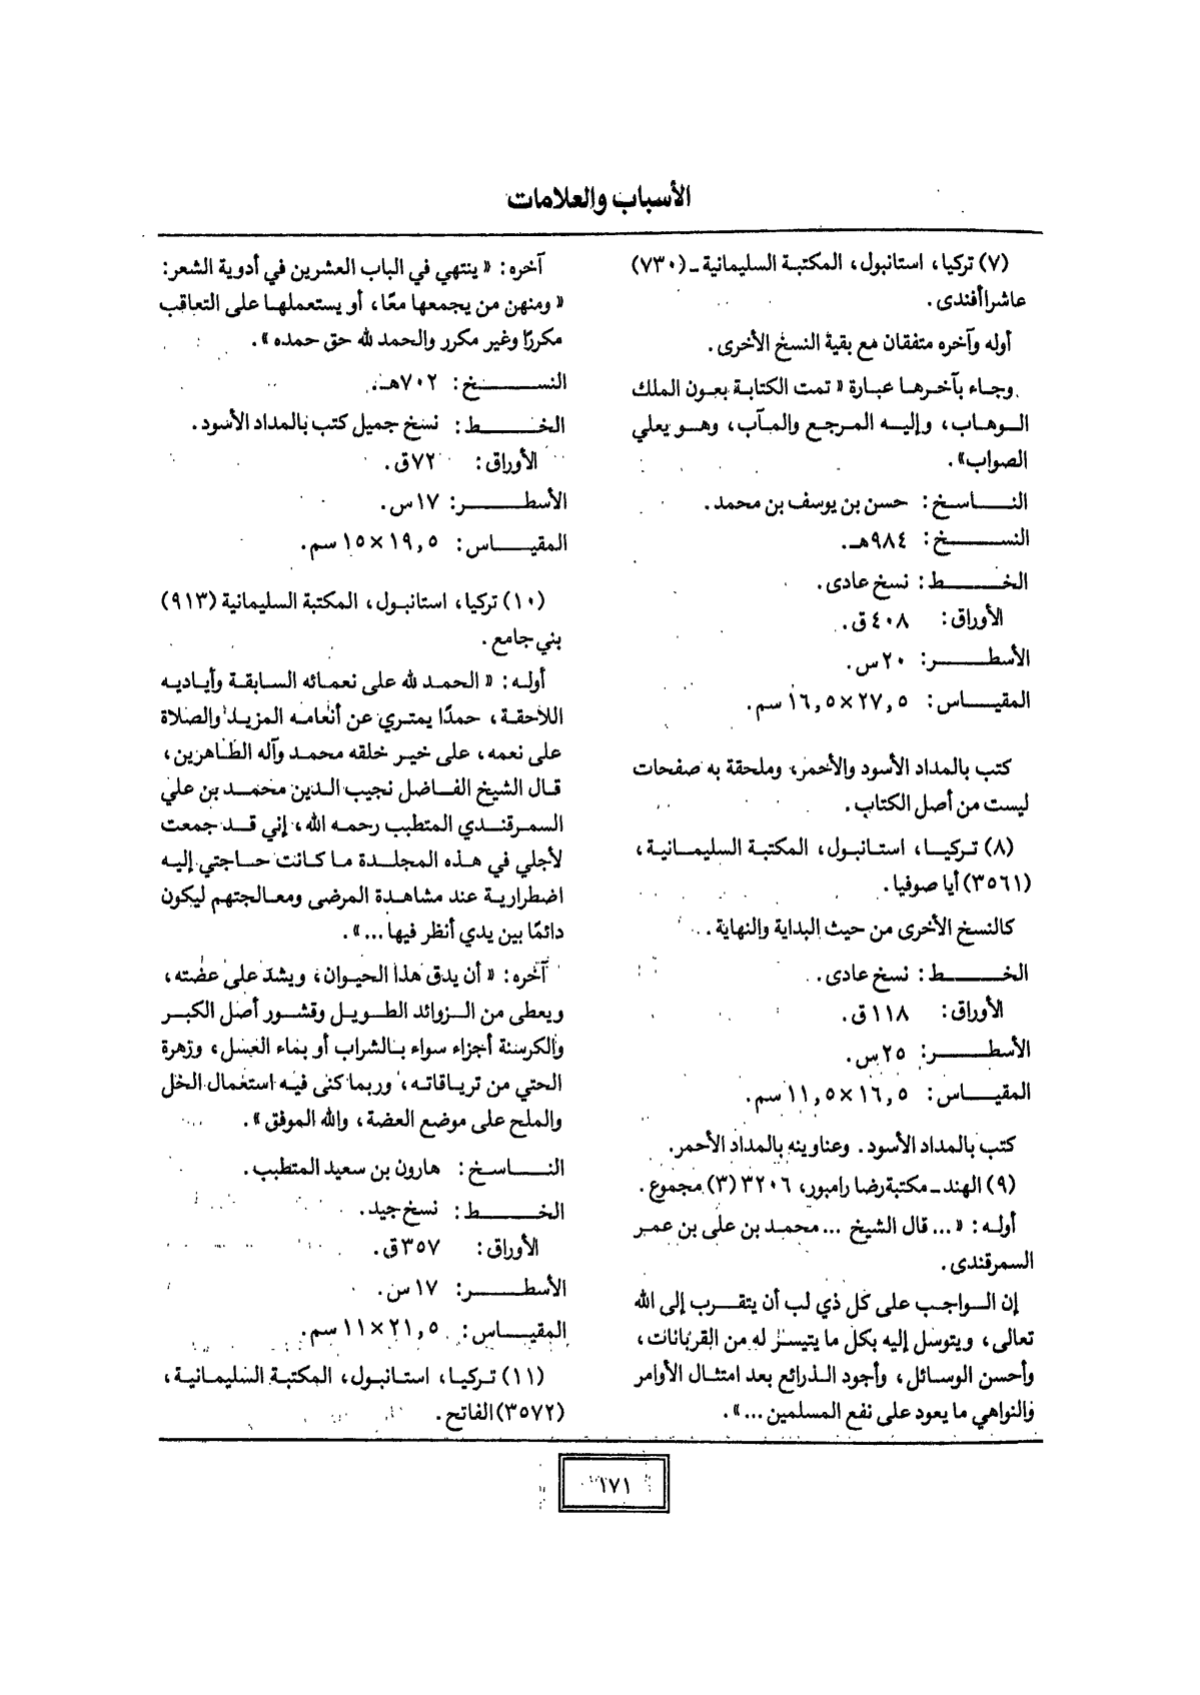 الأسباب والعلامات
(٧) تركيا، استانبول، المكتبة السليمانية ـ (٧٣٠)
عاشرا أفندى .
أوله وآخره متفقان مع بقية النسخ الأخرى .
وجاء بآخرها عبارة « تمت الكتابة بعون الملك
الوهاب، وإليه المرجع والمآب، وهو يعلي
الصواب» .
الناسخ : حسن بن يوسف بن محمد .
النسخ : ٩٨٤هـ.
الخط : نسخ عادى .
الأوراق: ٤٠٨ ق .
الأسطر: ٢٠ س .
المقياس: ٢٧,٥×١٦,٥ سم .
كتب بالمداد الأسود والأحمر، وملحقة به صفحات
ليست من أصل الكتاب .
(٨) تركيا، استانبول، المكتبة السليمانية،
(٣٥٦١) أيا صوفيا .
كالنسخ الأخرى من حيث البداية والنهاية .
الخط : نسخ عادى .
الأوراق: ١١٨ ق .
الأسطر: ٢٥ س .
المقياس: ١٦,٥×١١,٥ سم .
كتب بالمداد الأسود . وعناوينه بالمداد الأحمر.
(٩) الهند ـ مكتبة رضا رامبور، ٣٢٠٦ (٣) مجموع .
أوله : « ... قال الشيخ ... محمد بن على بن عمر
السمرقندى .
إن الواجب على كل ذي لب أن يتقرب إلى الله
تعالى، ويتوسل إليه بكل ما يتيسر له من القربانات،
وأحسن الوسائل، وأجود الذرائع بعد امتثال الأوامر
والنواهي ما يعود على نفع المسلمين ...» .
آخره : « ينتهي في الباب العشرين في أدوية الشعر:
« ومنهن من يجمعها معًا، أو يستعملها على التعاقب
مكررًا وغير مكرر والحمد لله حق حمده» .
النسخ : ٧٠٢هـ.
الخط : نسخ جميل كتب بالمداد الأسود .
الأوراق : ٧٢ ق .
الأسطر: ١٧ س .
المقياس : ١٩,٥×١٥ سم .
(١٠) تركيا، استانبول، المكتبة السليمانية (٩١٣)
بني جامع .
أوله : « الحمد لله على نعمائه السابقة وأياديه
اللاحقة، حمدًا يمتري عن أنعامه المزيد والصلاة
على نعمه، على خير خلقه محمد وآله الطاهرين،
قال الشيخ الفاضل نجيب الدين محمد بن علي
السمرقندي المتطبب رحمه الله، إني قد جمعت
لأجلي في هذه المجلدة ما كانت حاجتي إليه
اضطرارية عند مشاهدة المرضى ومعالجتهم ليكون
دائمًا بين يدي أنظر فيها ...» .
آخره : « أن يدق هذا الحيوان، ويشد على عضته،
ويعطى من الزوائد الطويل وقشور أصل الكبر
والكرسنة أجزاء سواء بالشراب أو بماء العسل، وزهرة
الحتي من ترياقاته، وربما كنى فيه استعمال الخل
والملح على موضع العضة، والله الموفق» .
الناسخ : هارون بن سعيد المتطبب .
الخط : نسخ جيد .
الأوراق : ٣٥٧ ق .
الأسطر: ١٧ س .
المقياس : ٢١,٥×١١ سم .
(١١) تركيا، استانبول، المكتبة السليمانية،
(٣٥٧٢) الفاتح .
١٧١